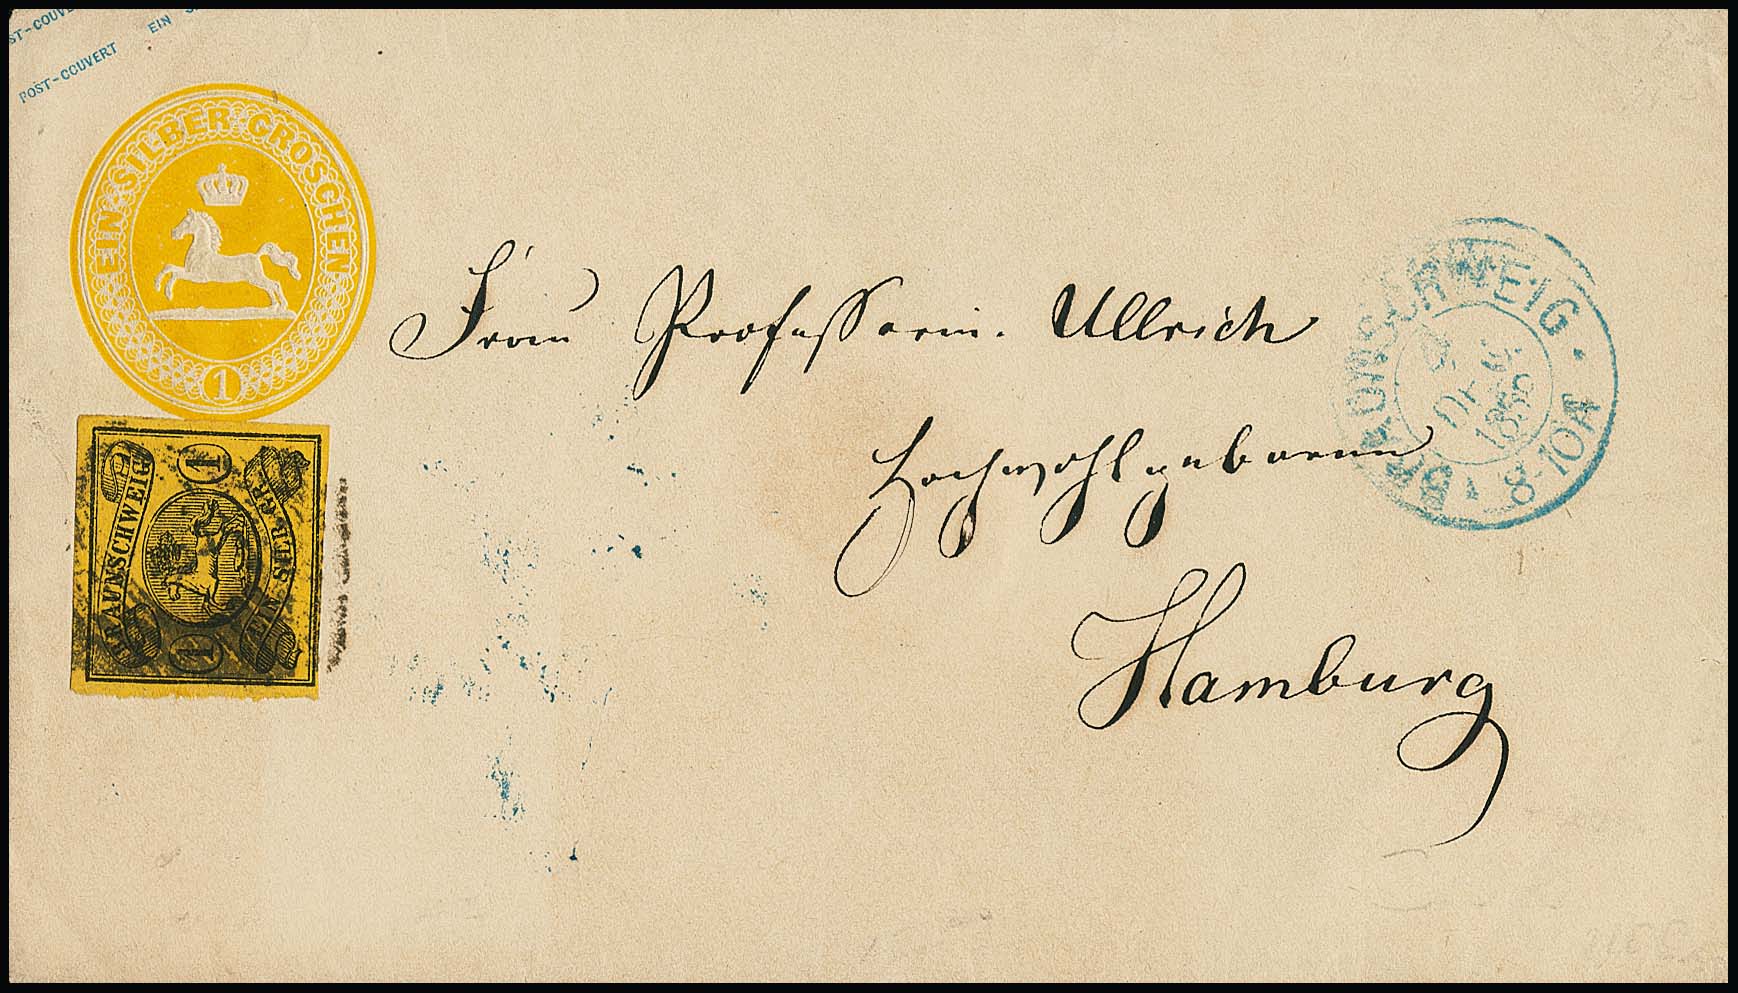 POST-COUVERT EIN
EIN·SILBER·GROSCHEN
1
Frau Professorin. Ullrich
Hochwohlgeboren
Hamburg
BRAUNSCHWEIG
8-10A
BRAUNSCHWEIG
1
EIN SILB. GR.
1